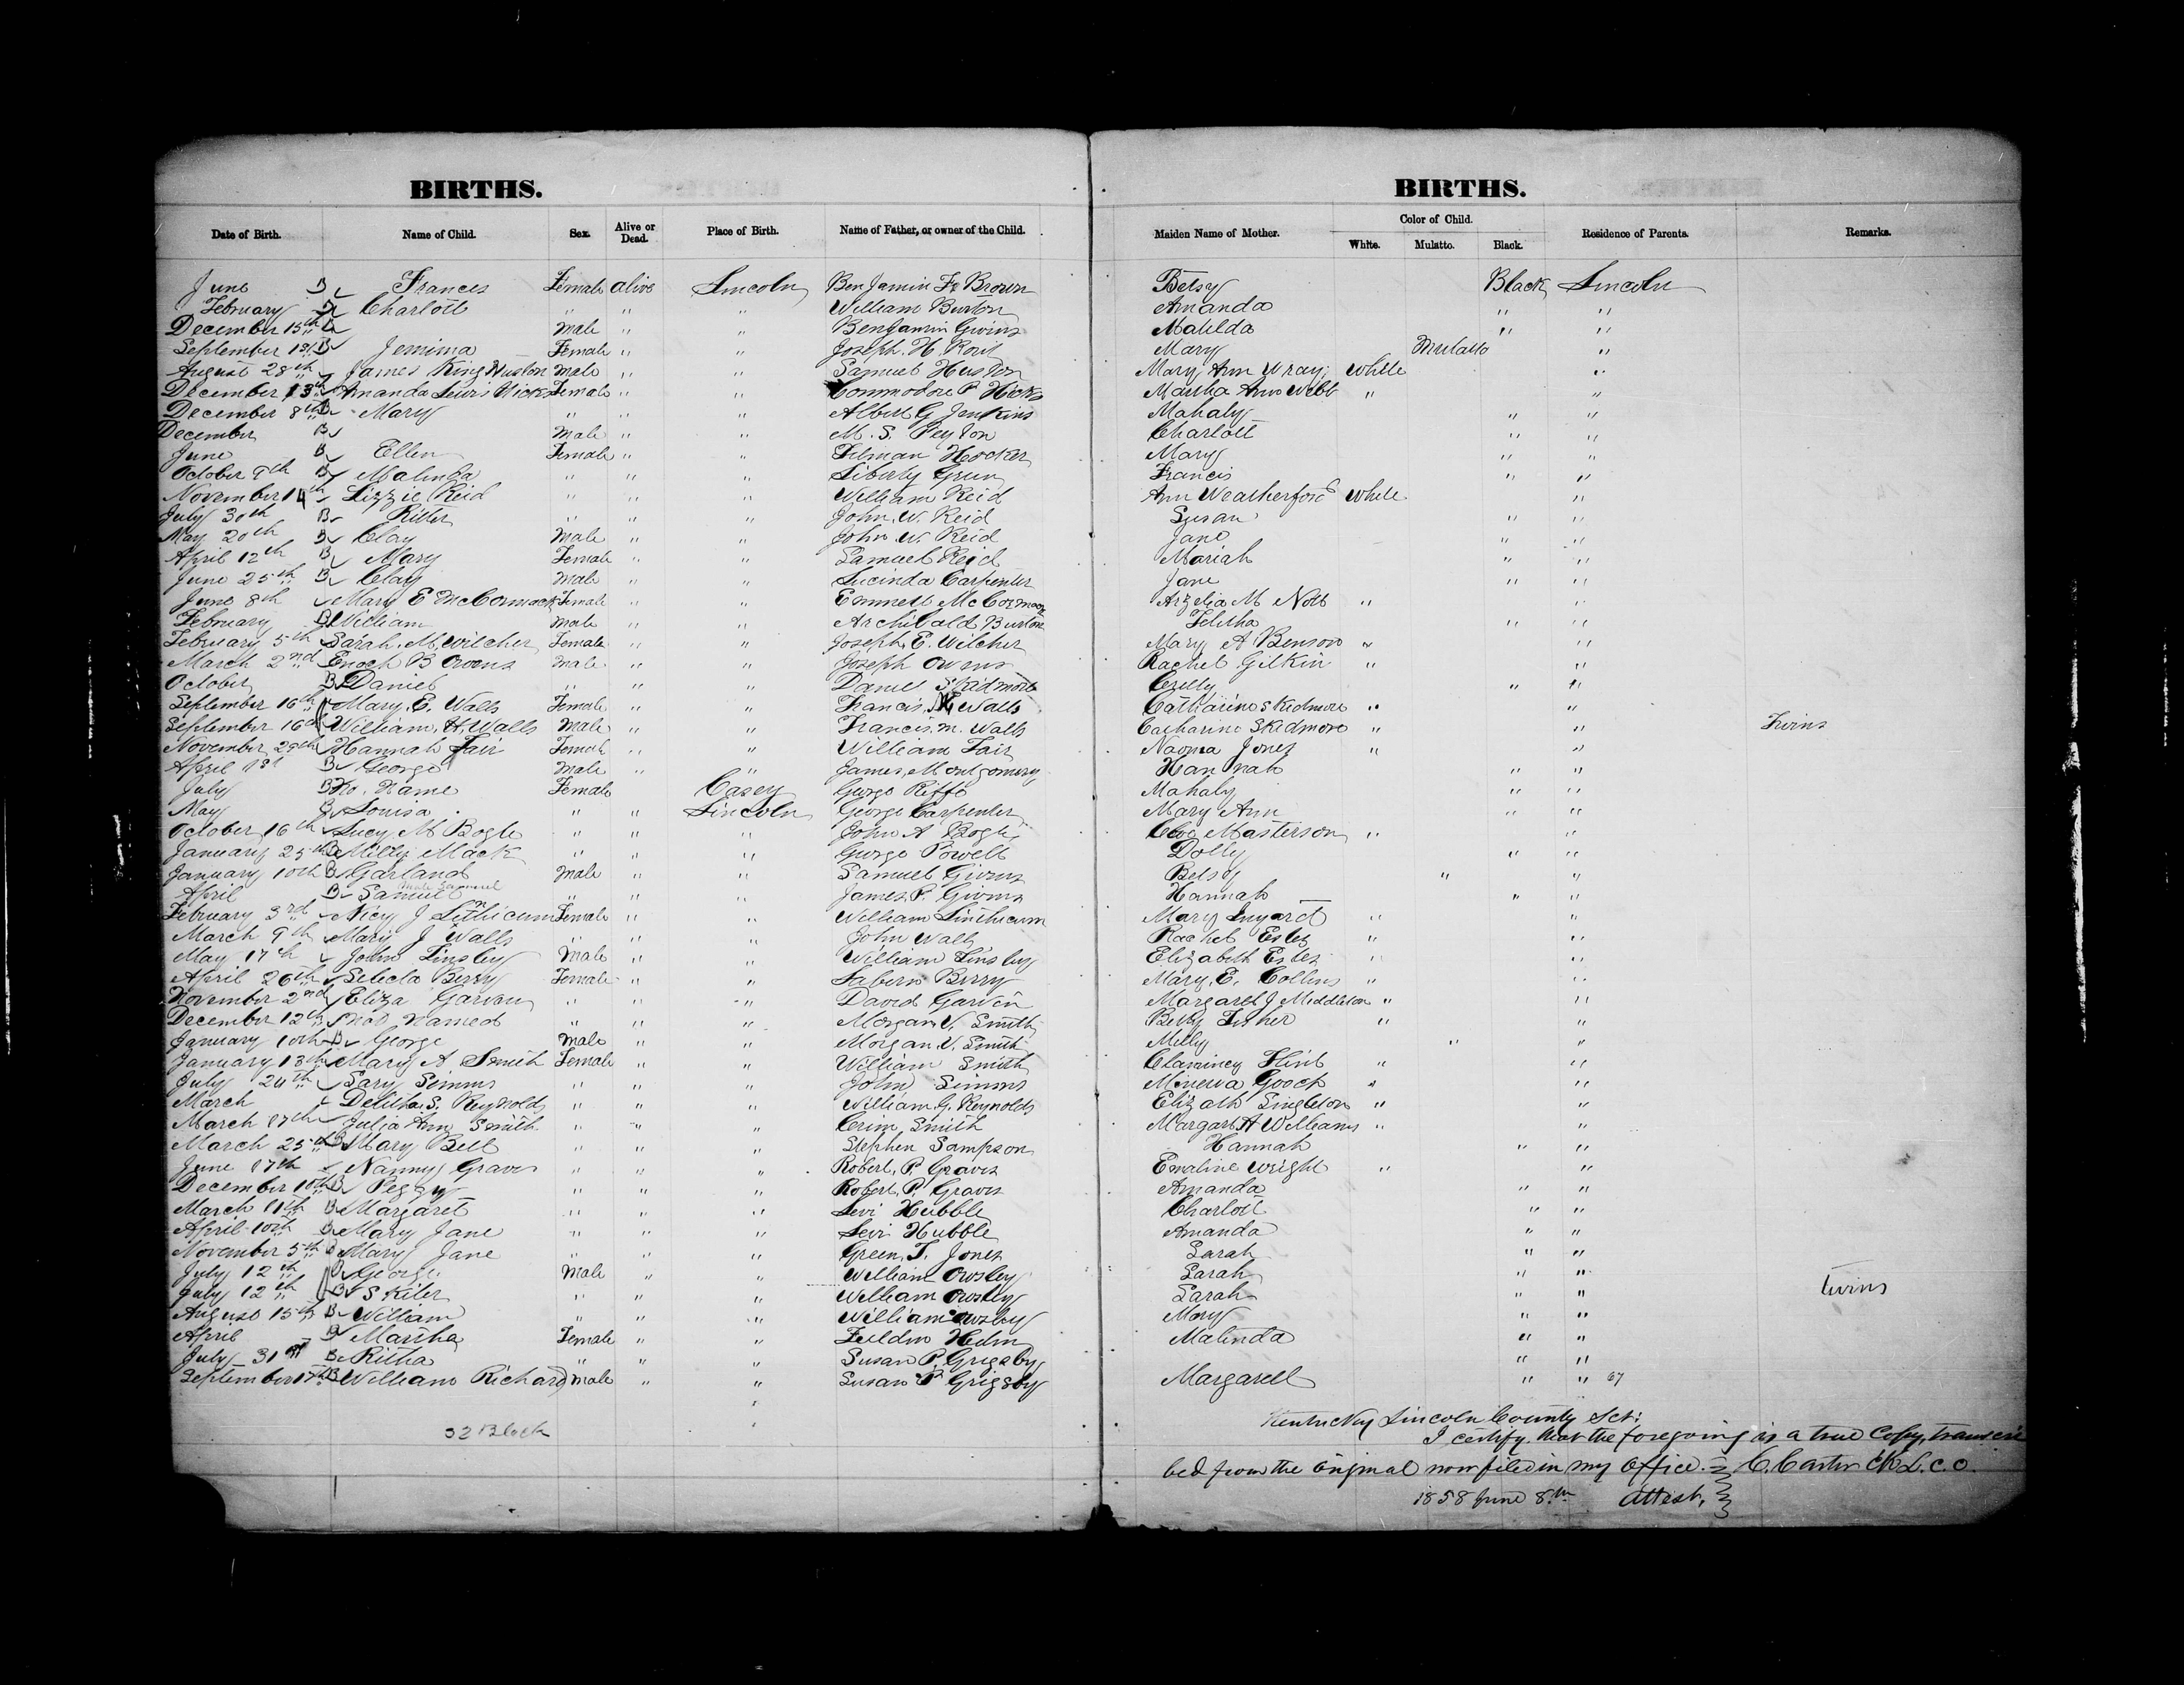 BIRTHS. BIRTHS.
Date of Birth. Name of Child. Sex. Alive or Dead. Place of Birth. Name of Father, or owner of the Child. Maiden Name of Mother. Color of Child. White. Mulatto. Black. Residence of Parents. Remarks.
June B Frances Female alive Lincoln Benjamin F Brown Betsy Black Lincoln
February B Charlott " " " William Burton Amanda " "
December 15th B Male " " Benjamin Givins Matilda " "
September 1st B Jemima Female " " Joseph H. Mary Mulatto "
August 28th James King Huston Male " " Samuel Huston Mary Ann Wray White "
December 13th Amanda Lewis Hicks Female " " Commodore P Hicks Martha Ann Webb " "
December 8th B Mary " " " Albert G Jenkins Mahaly " "
December B Male " " M. S. Peyton Charlott " "
June B Ellen Female " " Tilman Hocker Mary " "
October 9th B Malinda " " " Liberty Green Francis " "
November 14th Lizzie Reid " " " William Reid Ann Weatherford White "
July 30th B Ritter " " " John W. Reid Susan " "
May 20th B Clay Male " " John W. Reid Jane " "
April 12th B Mary Female " " Samuel Reid Mariah " "
June 25th B Clay Male " " Lucinda Carpenter Jane " "
June 8th Mary E McCormack Female " " Emmett McCormack Arzelia M Nott " "
February B William Male " " Archibald Burton Telitha " "
February 5th Sarah M. Wilcher Female " " Joseph E. Wilcher Mary A Benson " "
March 2nd Enoch B Owens Male " " Joseph Owens Rachel Gilkin " "
October B Daniel " " " Daniel Skidmore " "
September 16th Mary E. Walls Female " " Francis M Walls Catharine Skidmore " "
September 16th William H Walls Male " " Francis M. Walls Catharine Skidmore " " Twins
November 29th Hannah Fair Female " " William Fair Naoma Jones " "
April 1st B George Male " " James Montgomery Hannah " "
July B No Name Female Casey George Riffe Mahaly " "
May B Louisa " " Lincoln George Carpenter Mary Ann " "
October 16th Lucy M Bogle " " " John A Bogle Masterson " "
January 25th B Milly Mack " " " George Powell Dolly " "
January 10th B Garland Male " " Samuel Givens Betsy " "
April B Samuel " " " James P. Givens Hannah " "
February 3rd Nicy J Linthicum Female " " William Linthicum Mary Inyard " "
March 9th Mary J Walls " " " John Walls Rachel Estes " "
May 17th John Tinsley Male " " William Tinsley Elizabeth Estes " "
April 26th Selecta Berry Female " " Berry Mary E. Collins " "
November 2nd Eliza Garvin " " " David Garvin Margaret J Middleton " "
December 12th Not Named " " " Morgan V. Smith Betsy Fisher " "
January 10th B George Male " " Morgan V. Smith Milly " "
January 13th Mary A Smith Female " " William Smith Flint " "
July 24th Sary Simms " " " John Simms Minerva Gooch " "
March Delitha S. Reynolds " " " William G. Reynolds Singleton " "
March 17th Julia Ann Smith " " " Smith Margart A Williams " "
March 25th B Mary Bell " " " Stephen Sampson Hannah " "
June 17th Nanny Graves " " " Robert P. Graves Emaline Wright " "
December 10th B Peggy " " " Robert P. Graves Amanda " "
March 11th B Margaret " " " Levi Hubble Charlott " "
April 10th B Mary Jane " " " Levi Hubble Amanda " "
November 5th B Mary Jane " " " Green T. Jones Sarah " "
July 12th B George Male " " William Owsley Sarah " "
July 12th B Skiler " " " William Owsley Sarah " " twins
August 15th B William " " " William Owsley Mary " "
April B Martha Female " " Malinda " "
July 31st B Ritha " " " Susan P. Grigsby " "
September 17th B William Richard Male " " Susan P Grigsby Margarett " " 67
32 Black
Kentucky Lincoln County Sct:
I certify that the foregoing is a true Copy, transcri
bed from the original now filed in my office. C. Carter Ck L.C.C.
1858 June 8th Attest,